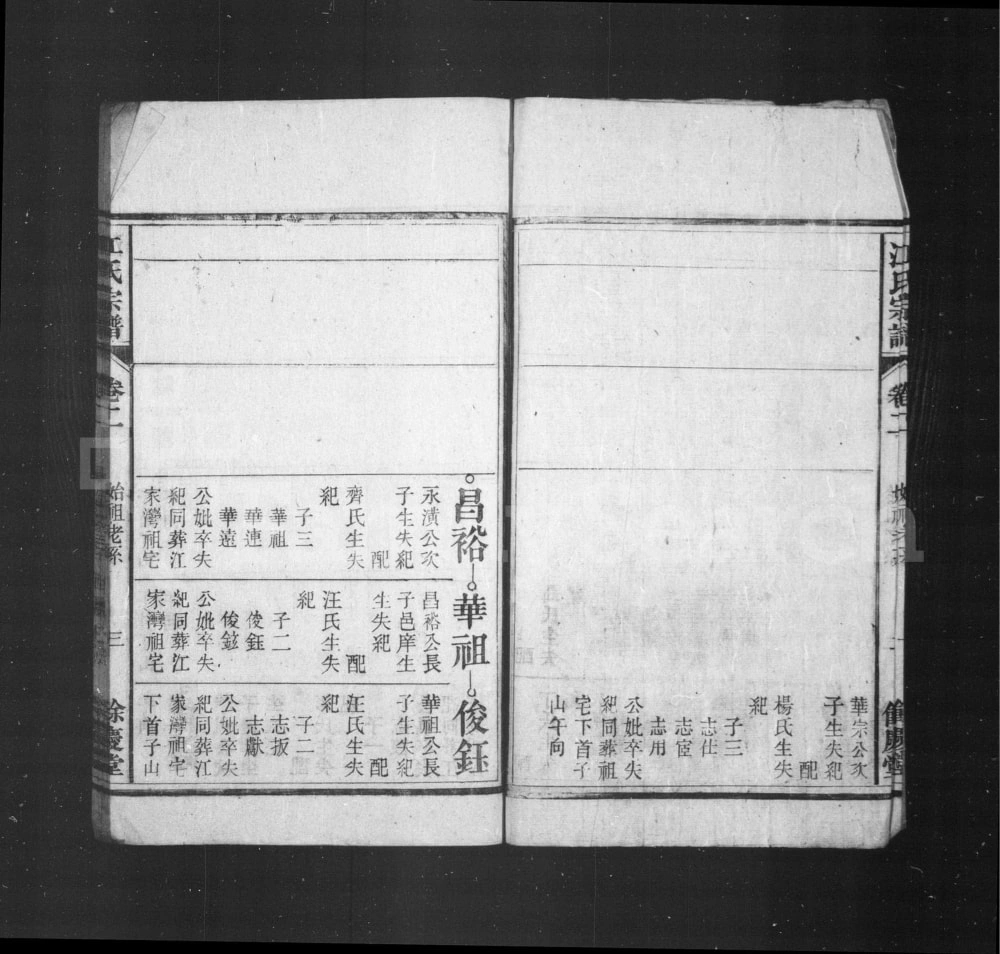 江氏宗譜
卷二
餘慶堂
華宗公次
子生失紀
配
楊氏生失
紀
子三
志仕
志宦
志用
公妣卒失
紀同葬祖
宅下首子
山午向
昌裕
永潢公次
子生失紀
配
齊氏生失
紀
子三
華祖
華連
華遠
公妣卒失
紀同葬江
家灣祖宅
華祖
昌裕公長
子邑庠生
生失紀
配
汪氏生失
紀
子二
俊鈺
俊鉉
公妣卒失
紀同葬江
家灣祖宅
俊鈺
華祖公長
子生失紀
配
汪氏生失
紀
子二
志扳
志獻
公妣卒失
紀同葬江
家灣祖宅
下首子山
江氏宗譜
卷二
始祖老系
三
餘慶堂